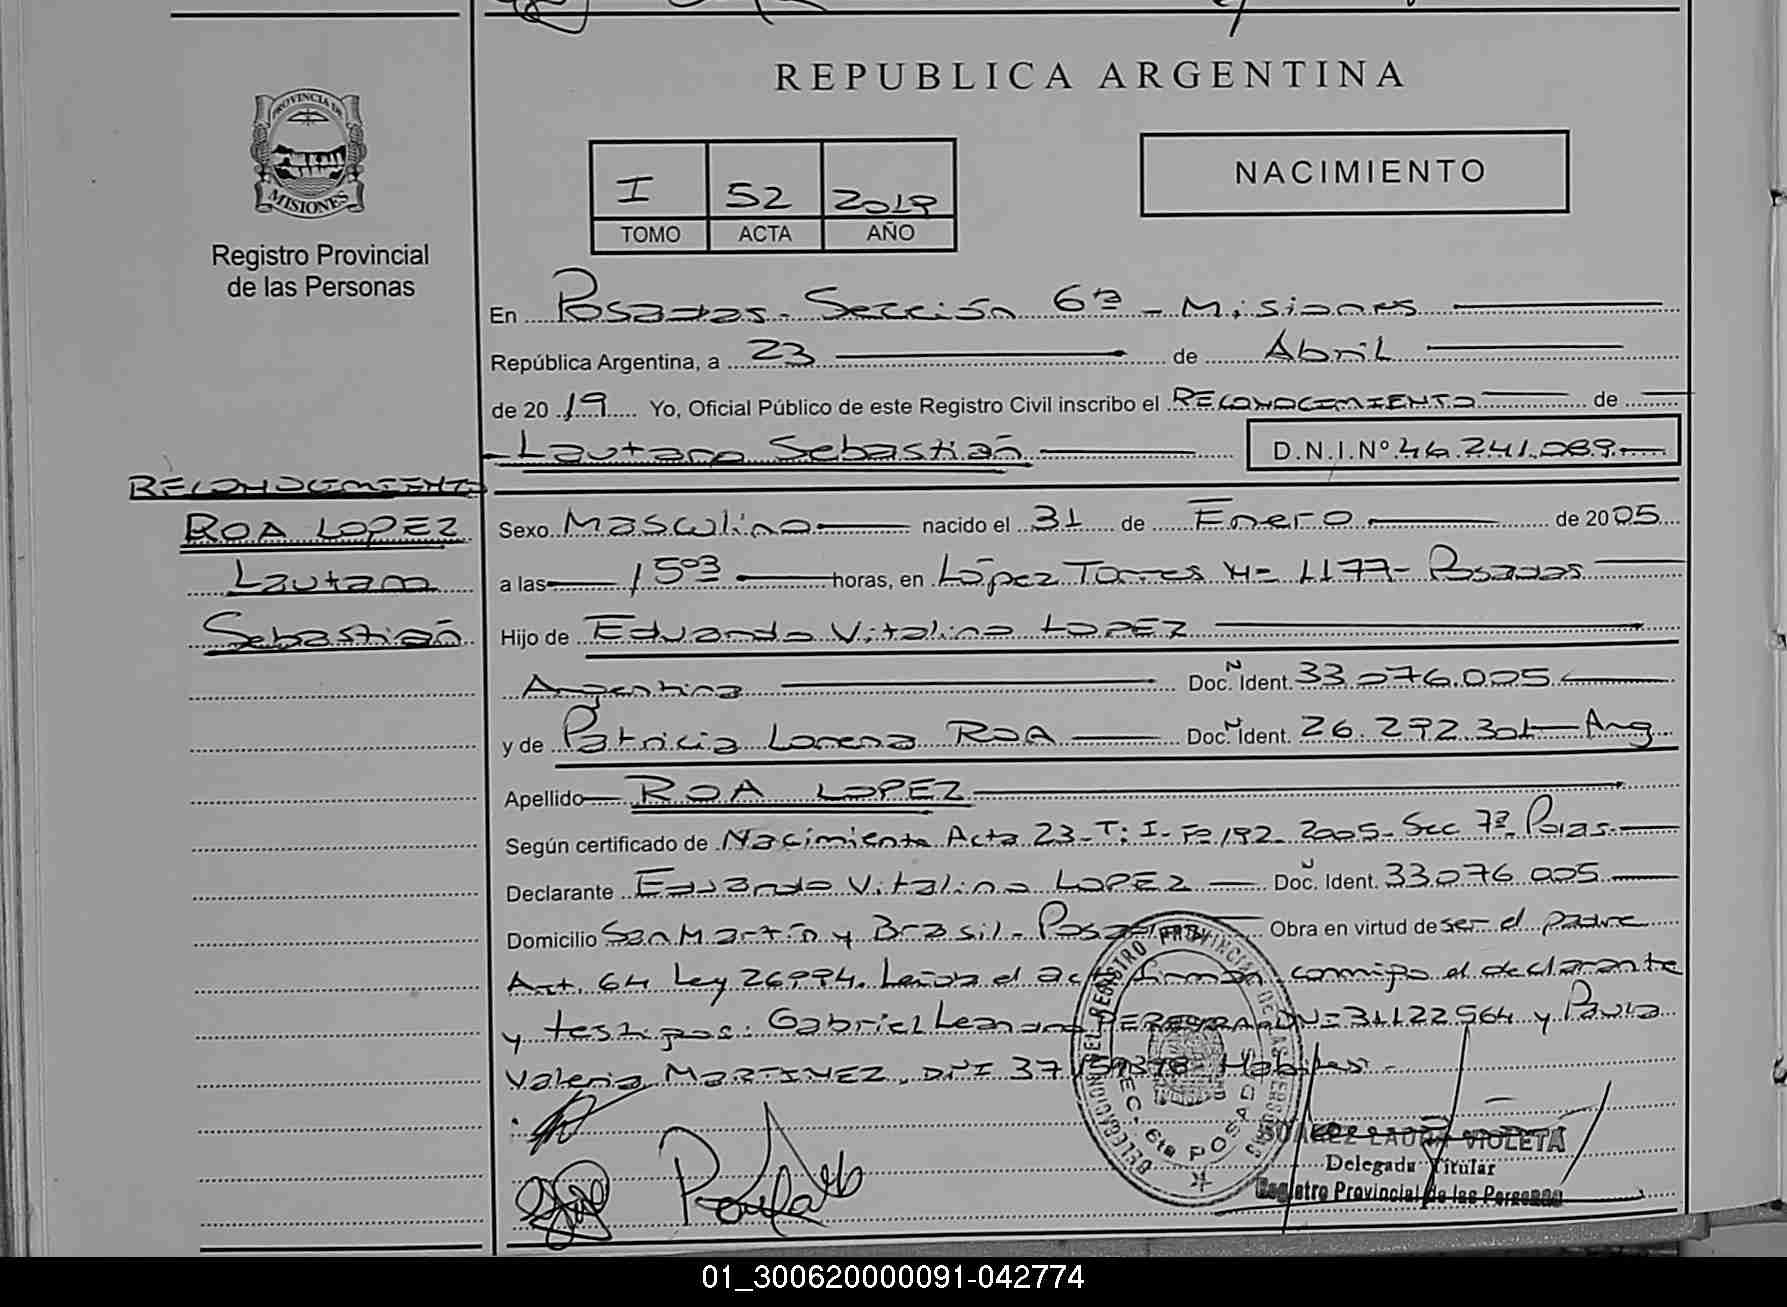 REPUBLICA ARGENTINA
PROVINCIA DE
MISIONES
Registro Provincial
de las Personas
I 52 2019
TOMO ACTA AÑO
NACIMIENTO
En Posadas - Sección 6ª - Misiones
República Argentina, a 23 de Abril
de 2019 Yo, Oficial Público de este Registro Civil inscribo el RECONOCIMIENTO de
Lautaro Sebastián D.N.I.Nº 46.241.089
RECONOCIMIENTO
ROA LOPEZ
Lautaro
Sebastián
Sexo Masculino nacido el 31 de Enero de 2005
a las 15º³ horas, en López Torres Nº 1177 - Posadas
Hijo de Eduardo Vitalino LOPEZ
Argentina Doc. Ident. 33.076.005
y de Patricia Lorena ROA Doc. Ident. 26.292.301 - Arg
Apellido ROA LOPEZ
Según certificado de Nacimiento Acta 23 - T: I - Fº 192 - 2005 - Sec 7ª - Pdas
Declarante Eduardo Vitalino LOPEZ Doc. Ident. 33.076.005
Domicilio San Martín y Brasil - Posadas Obra en virtud de ser el padre
Art. 64 Ley 26994. Leída el acta firman conmigo el declarante
y testigos: Gabriel Leandro PEREYRA DNI 31122564 y Paula
Valeria MARTINEZ, DNI 37159378 Hábiles -
DELEGACION DEL REGISTRO PROVINCIAL DE LAS PERSONAS
SEC. 6ta POSADAS
SUAREZ LAURA VIOLETA
Delegada Titular
Registro Provincial de las Personas
01_300620000091-042774